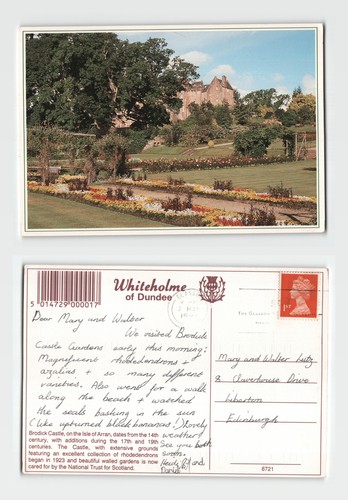 5 014729 000017
Whiteholme
of Dundee
1ST
Dear Mary and Walter
We visited Brodick
Castle Gardens early this morning:
Magnificent rhododendrons +
azaleas + so many different
varieties. Also went for a walk
along the beach + watched
the seals basking in the sun
(like upturned black bananas!) lovely
weather!
See you both
soon.
and
Daniel
Mary and Walter Lutz
8 Claverhouse Drive
Liberton
Edinburgh
Brodick Castle, on the Isle of Arran, dates from the 14th
century, with additions during the 17th and 19th
centuries. The Castle, with extensive grounds
featuring an excellent collection of rhododendrons
began in 1923 and beautiful walled gardens is now
cared for by the National Trust for Scotland.
8721